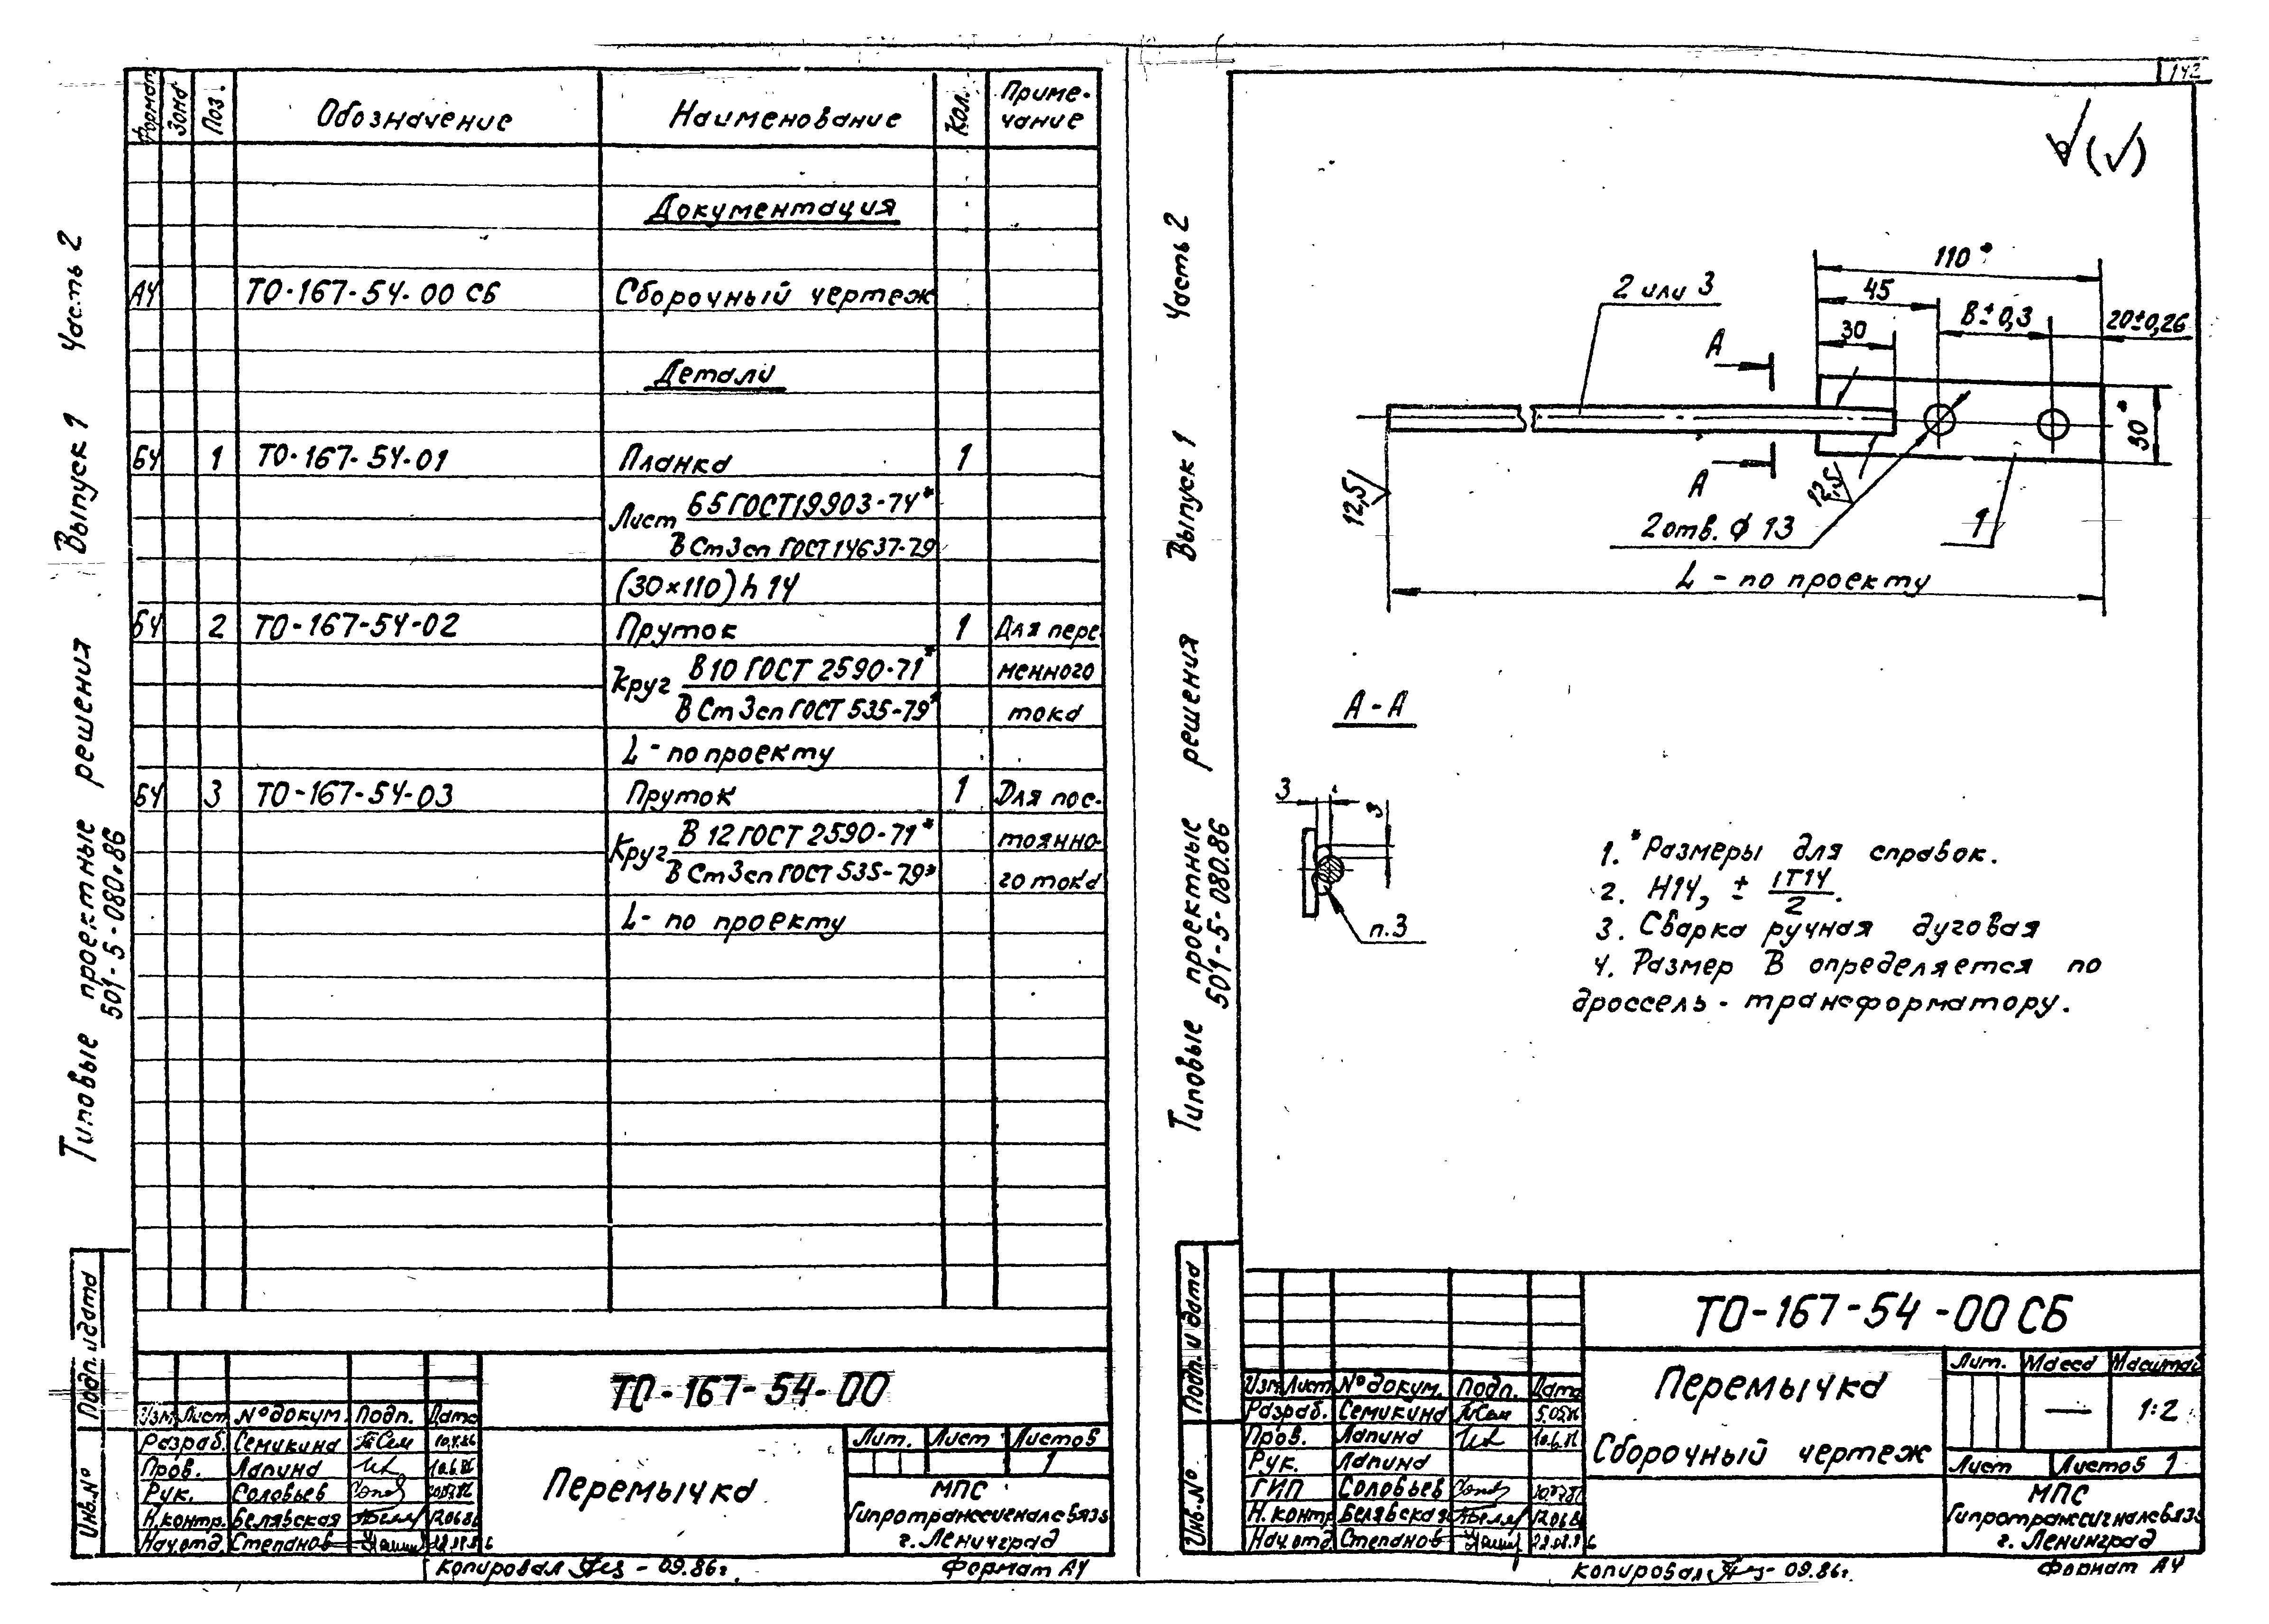 Типовые проектные решения Выпуск 1 Часть 2
501-5-080.86
Формат Зона Поз. Обозначение Наименование Кол. Приме-
чание
Документация
А4 ТО-167-54-00 СБ Сборочный чертеж
Детали
БЧ 1 ТО-167-54-01 Планка 1
Лист Б5 ГОСТ19903-74*
В Ст3сп ГОСТ14637-79
(30×110) h14
БЧ 2 ТО-167-54-02 Пруток 1 Для пере
Круг В10 ГОСТ 2590-71* менного
В Ст3сп ГОСТ 535-79* тока
L - по проекту
БЧ 3 ТО-167-54-03 Пруток 1 Для пос-
Круг В12 ГОСТ 2590-71* тоянно-
В Ст3сп ГОСТ 535-79* го тока
L - по проекту
Подп. и дата
Инв.№
ТО-167-54-00
Изм Лист №докум. Подп. Дата
Разраб. Семикина 10.4.86
Пров. Лапина 10.6.86
Рук. Соловьев
Н.контр. Белявская 12.06.86
Нач.отд. Степанов
Перемычка
Лит. Лист Листов
1
МПС
Гипротранссигналсвязь
г. Ленинград
Копировал - 09.86г.
Формат А4
142
Типовые проектные решения Выпуск 1 Часть 2
501-5-080.86
(√)
110*
2 или 3
45
В±0,3
20±0,26
30
А
30*
А
12,5
12,5
2 отв. ϕ 13
1
L - по проекту
А-А
3
3
п.3
1. *Размеры для справок.
2. Н14, ± IT14/2.
3. Сварка ручная дуговая
4. Размер В определяется по
дроссель-трансформатору.
Подп. и дата
Инв.№
ТО-167-54-00 СБ
Изм Лист №докум. Подп. Дата
Разраб. Семикина 5.05.86
Пров. Лапина 10.6.86
Рук. Лапина
ГИП Соловьев
Н.контр Белявская 12.06.86
Нач.отд Степанов
Перемычка
Сборочный чертеж
Лит. Масса Масштаб
— 1:2
Лист Листов 1
МПС
Гипротранссигналсвязь
г. Ленинград
Копировал - 09.86г.
Формат А4